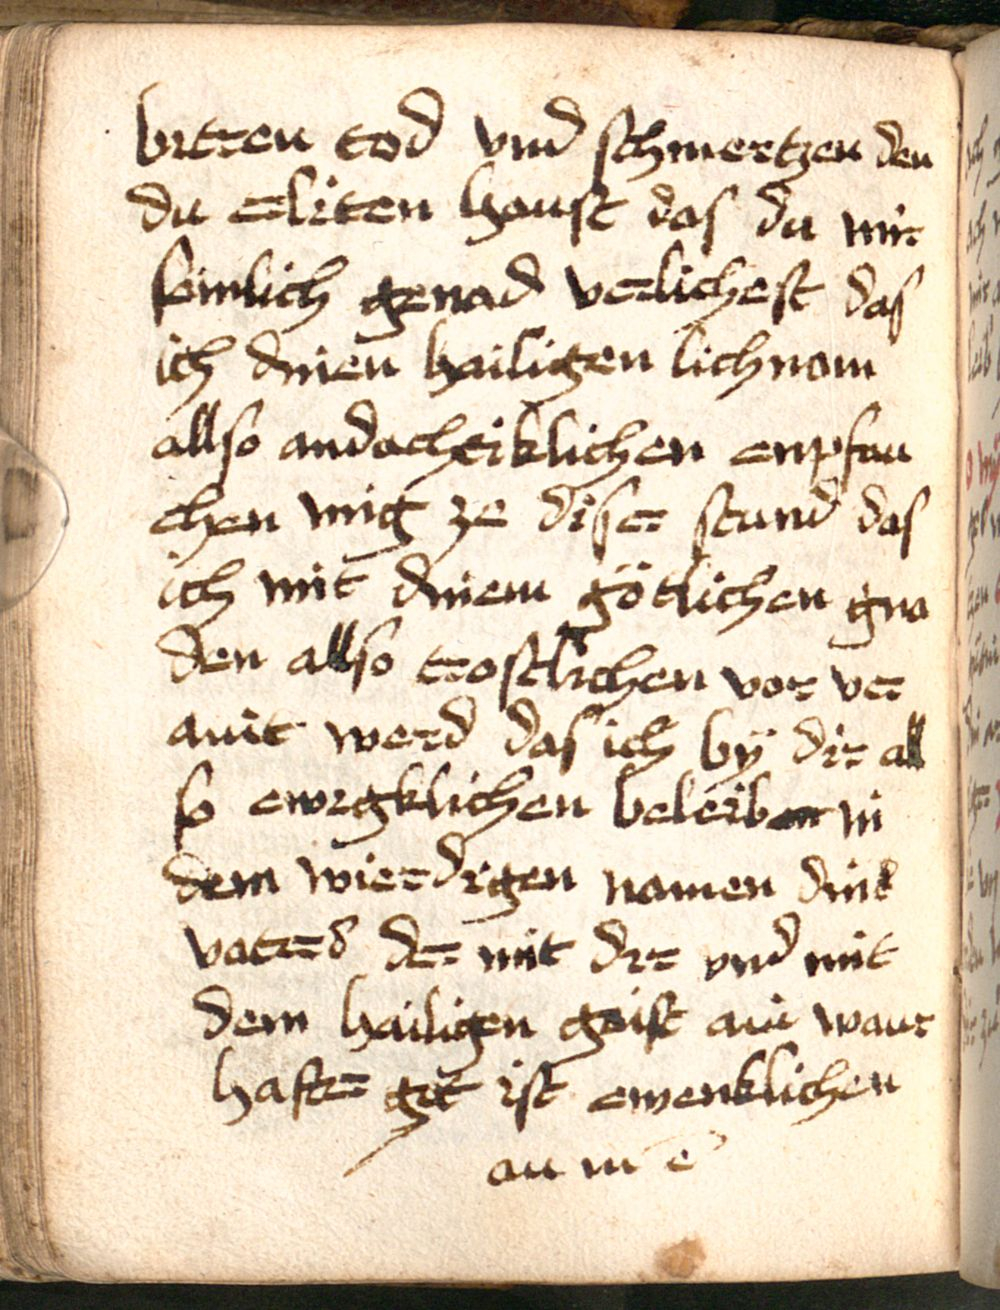 bitren tod vnd schmertzen den
du eliten haust das du mir
semlich genad verlichest das
ich dinen hailigen lichnam
allso andachtiklichen enpfau
chen mig ze diser stund das
ich mit dinem götlichen gna
den allso trostlichen vor ver
aint werd das ich by dir all
so ewigklichen beleiben in
dem wierdigen namen dins
vaters der mit dir vnd mit
dem hailigen gaist ain waur
hafter got ist ewenklichen
amē